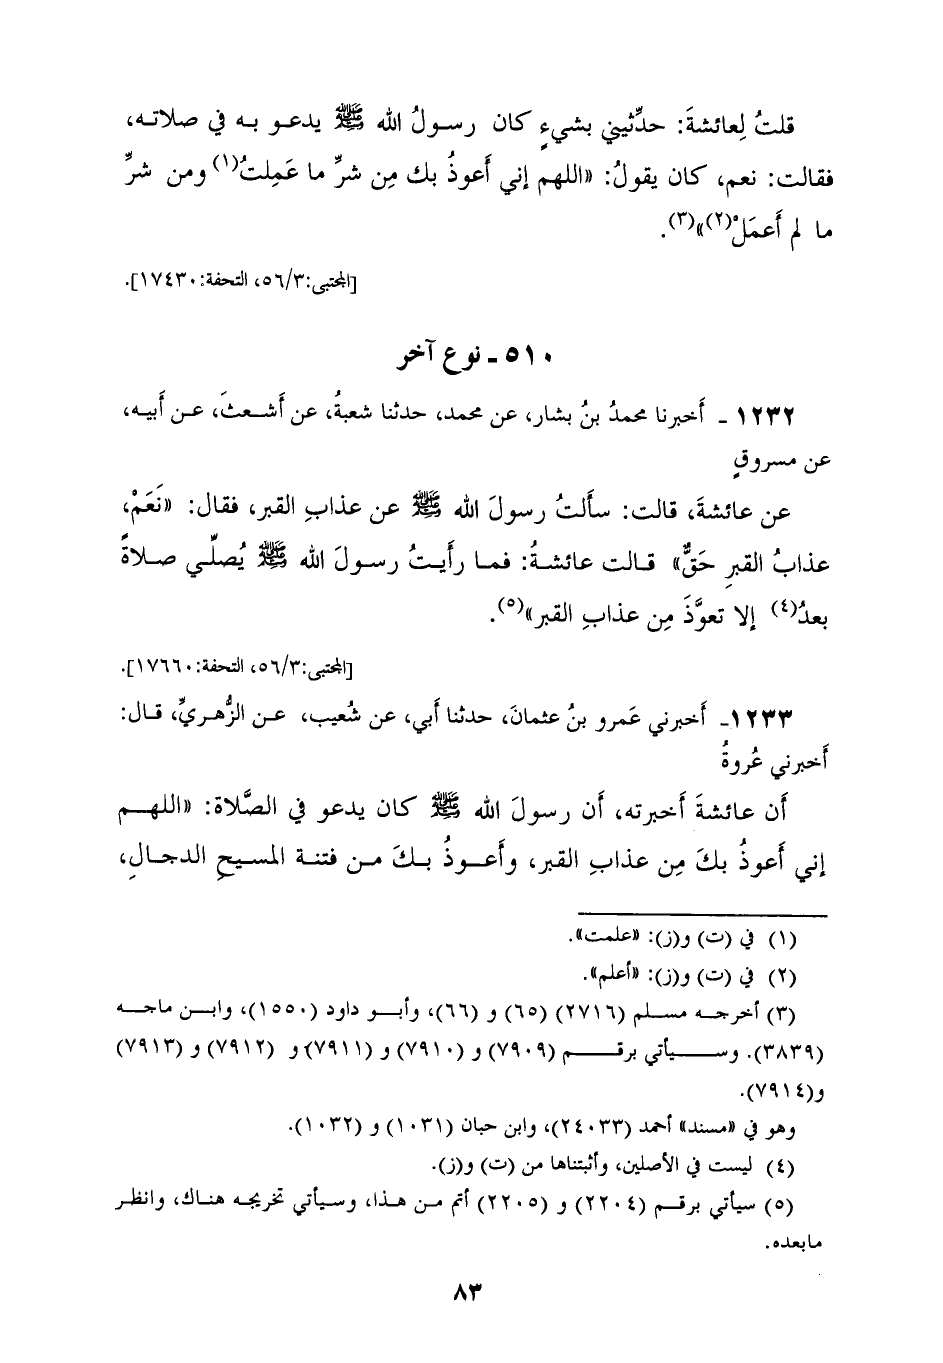 قلتُ لِعائشةَ: حدِّثيني بشيءٍ كان رسولُ الله ﷺ يدعو به في صلاته،
فقالت: نعم، كان يقولُ: «اللهم إني أَعوذُ بك مِن شرِّ ما عَمِلتُ(١) ومن شرِّ
ما لم أَعمَلْ(٢)»(٣).
[المجتبى:٥٦/٣، التحفة:١٧٤٣٠].
٥١٠ ـ نوع آخر
١٢٣٢ ـ أَخبرنا محمدُ بنُ بشار، عن محمد، حدثنا شعبةُ، عن أَشعثَ، عن أَبيه،
عن مسروقٍ
عن عائشةَ، قالت: سأَلتُ رسولَ الله ﷺ عن عذابِ القبر، فقال: «نَعَمْ،
عذابُ القبرِ حَقٌّ» قالت عائشةُ: فما رأَيتُ رسولَ الله ﷺ يُصلّي صلاةً
بعدُ(٤) إلا تعوَّذَ مِن عذابِ القبر»(٥).
[المجتبى:٥٦/٣، التحفة:١٧٦٦٠].
١٢٣٣ـ أَخبرني عَمرو بنُ عثمانَ، حدثنا أَبي، عن شُعيب، عن الزُّهريِّ، قال:
أَخبرني عُروةُ
أَن عائشةَ أَخبرته، أَن رسولَ الله ﷺ كان يدعو في الصَّلاة: «اللهم
إني أَعوذُ بكَ مِن عذابِ القبر، وأَعوذُ بكَ من فتنة المسيحِ الدجالِ،
(١) في (ت) و(ز): «علمت».
(٢) في (ت) و(ز): «أعلم».
(٣) أخرجه مسلم (٢٧١٦) (٦٥) و (٦٦)، وأبو داود (١٥٥٠)، وابن ماجه
(٣٨٣٩). وسيأتي برقم (٧٩٠٩) و (٧٩١٠) و (٧٩١١) و (٧٩١٢) و (٧٩١٣)
و(٧٩١٤).
وهو في «مسند» أحمد (٢٤٠٣٣)، وابن حبان (١٠٣١) و (١٠٣٢).
(٤) ليست في الأصلين، وأثبتناها من (ت) و(ز).
(٥) سيأتي برقم (٢٢٠٤) و (٢٢٠٥) أتم من هذا، وسيأتي تخريجه هناك، وانظر
مابعده.
٨٣